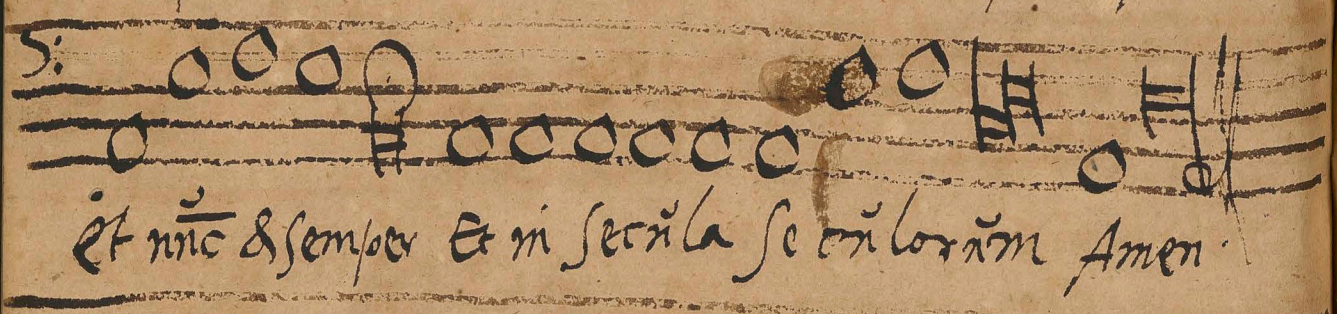 Et nũc & semper Et in secŭla se cŭlorŭm Amen.